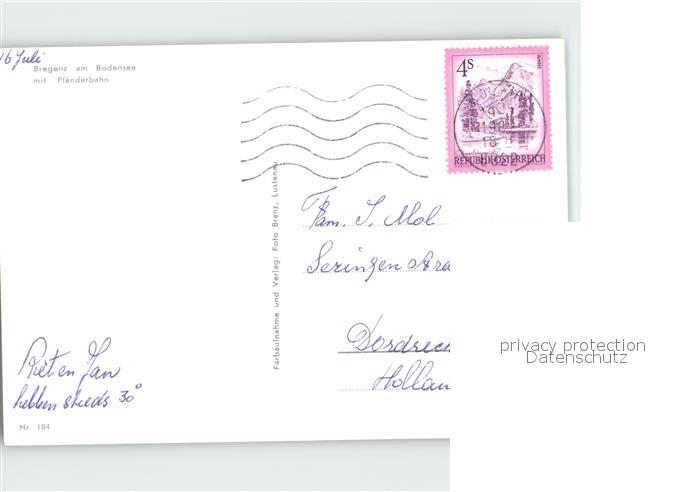 16 Juli
Bregenz am Bodensee
mit Pfänderbahn
4S
ALMSEE
REPUBLIK ÖSTERREICH
Farbaufnahme und Verlag: Foto Branz, Lustenau
Fam. J. Mol
Seringenstra
Dordrec
Hollan
Riet en Jan
hebben steeds 30°
Nr. 104
privacy protection
Datenschutz